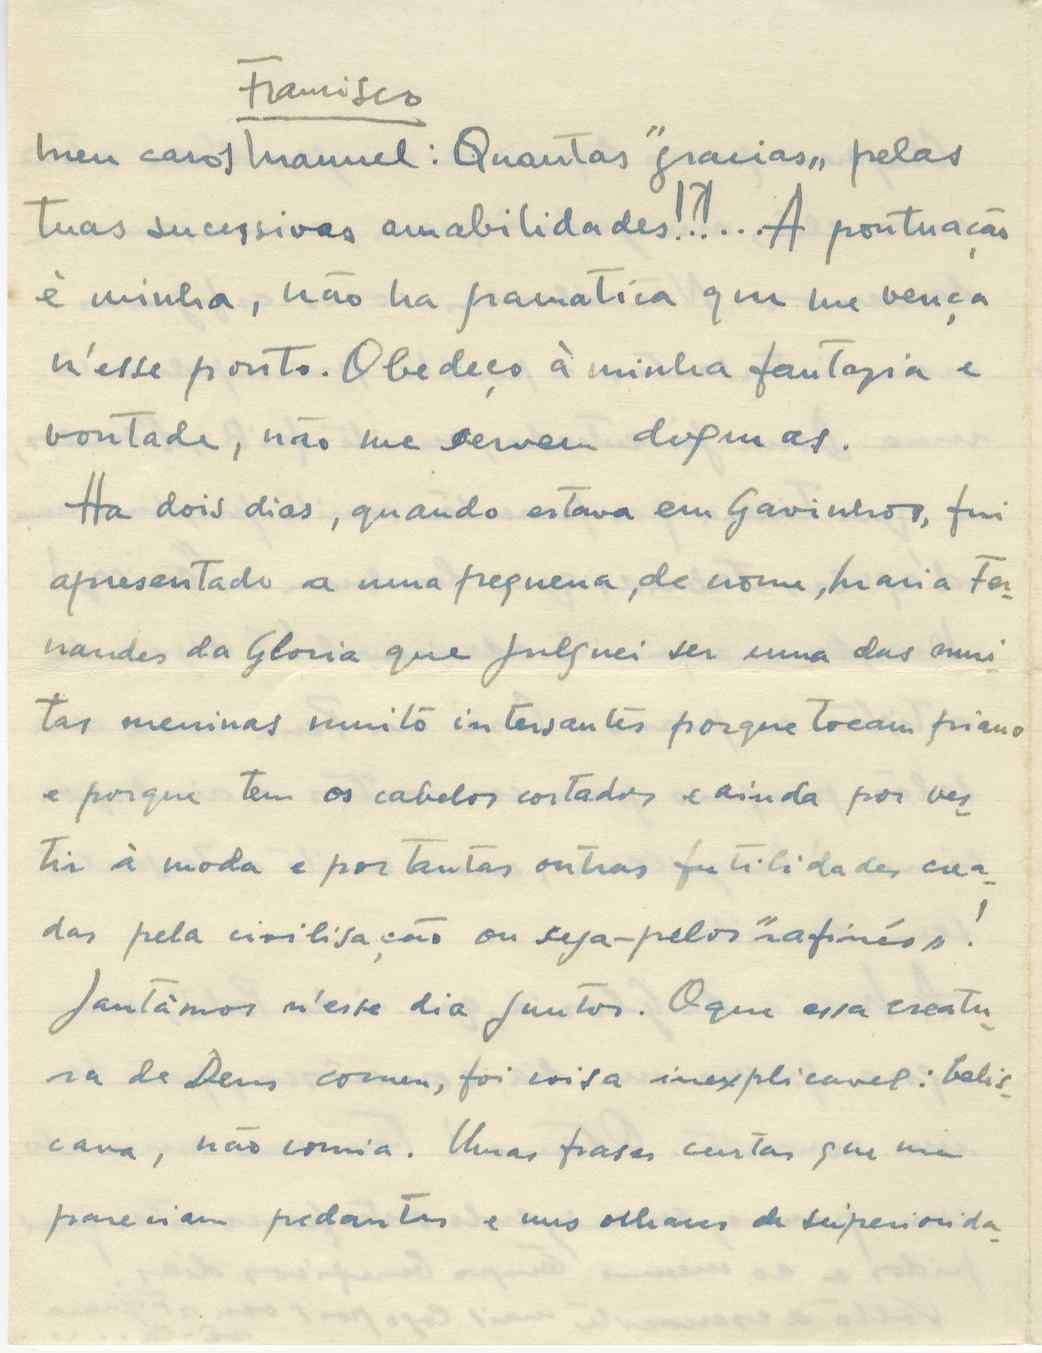 Francisco
Meu caro Manuel: Quantas "gracias" pelas
tuas sucessivas amabilidades!?!... A pontuação
é minha, não ha gramatica que me vença
n'esse ponto. Obedeço à minha fantazia e
vontade, não me servem dogmas.
Ha dois dias, quando estava em Gavinhos, fui
apresentado a uma pequena, de nome, Maria Fer-
nandes da Gloria que julguei ser uma das mui-
tas meninas muito intersantes porque tocam piano
e porque tem os cabelos cortados e ainda por ves-
tir à moda e por tantas outras futilidades crea-
das pela civilisação ou seja-pelos "rafinés"!
Jantâmos n'esse dia juntos. O que essa creatu-
ra de Deus comeu, foi coisa inexplicavel: belis-
cava, não comia. Umas frases curtas que me
pareciam pedantes e uns olhares de superiorida-